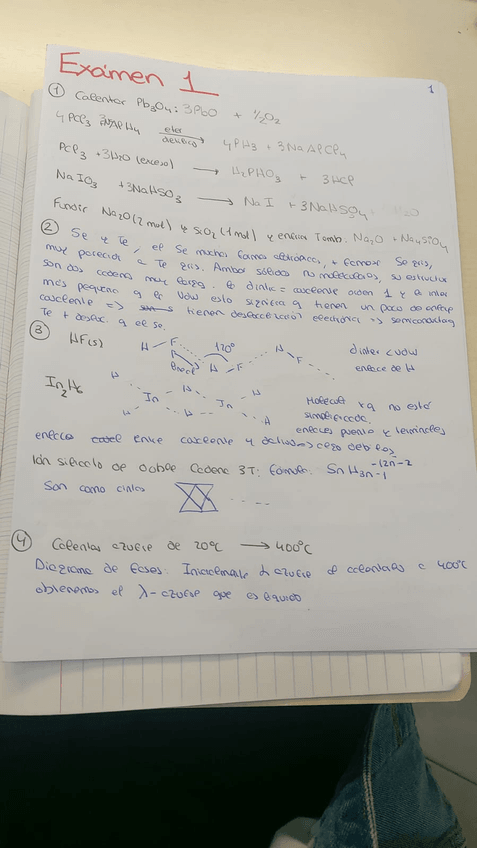 Exámen 1
1
① Calentar Pb3O4: 3PbO + 1/2O2
4PCl3 + 3NaAlH4 eter dietílico → 4PH3 + 3NaAlCl4
PCl3 + 3H2O (exceso) → H2PHO3 + 3HCl
NaIO3 + 3NaHSO3 → NaI + 3NaHSO4
Fundir Na2O (2 mol) y SiO2 (1 mol) y enfriar Tamb. Na2O + Na4SiO4
② Se y Te, el Se muchas formas + Se gris,
muy parecida a Te gris. Ambos sólidos no moleculares, su estructura
son dos cadenas muy largas. = covalente orden 1 y la inter
más pequeña q la VdW esto significa q tienen un poco de enlace
covalente => tienen deslocalización electrónica => semiconductores
Te + desloc. q el Se.
③ HF(s) H F 120° H F H F dinter < VdW
enlace de H
In2H6 H H H In In H H H Molécula xq no está
simplificada,
enlaces puente y terminales
enlaces entre covalente y
Ion silicato de doble cadena 3T: fórmula. SnH3n-1 -12n-2
Son como cintas
④ Calentar azufre de 20ºC → 400ºC
Diagrama de fases. Inicialmente α azufre al calentarlo a 400ºC
obtenemos el λ-azufre que es líquido